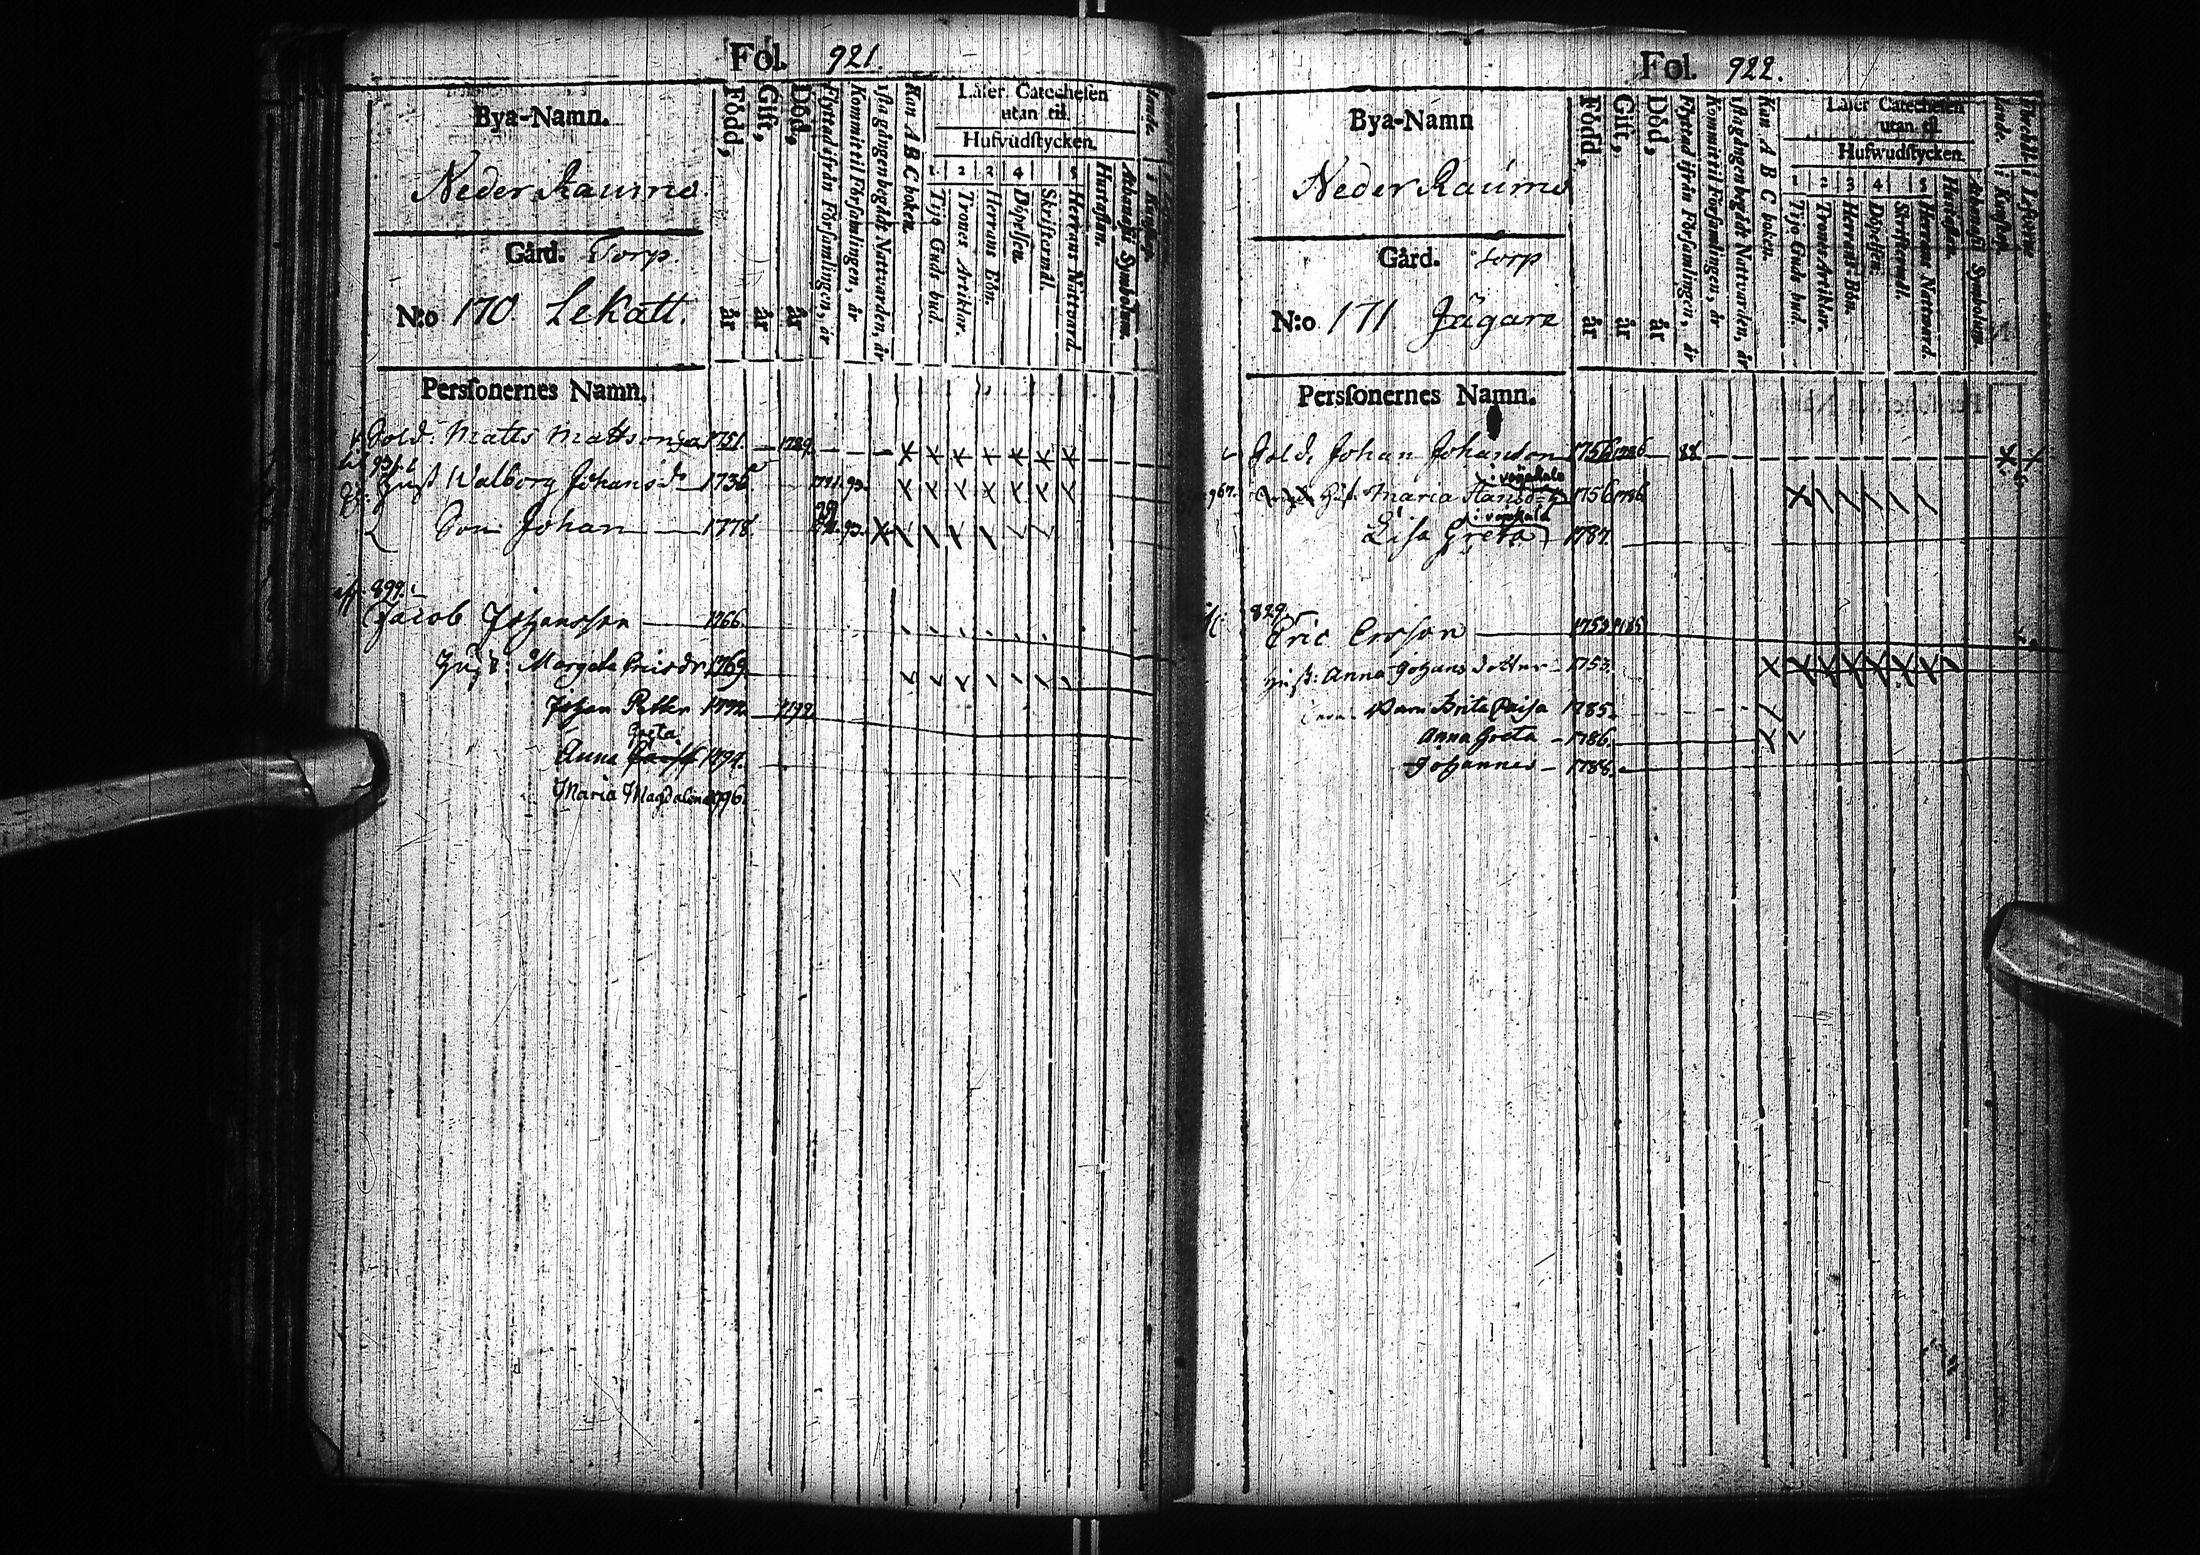 Fol. 921.
Bya-Namn.
Neder Raumo
Gård. Torp.
N:o 170 Lekatt.
Född, år
Gift, år
Död, år
Flyttad ifrån Församlingen, år
Kommit til Församlingen, år
1sta gången begådt Nattvarden, år
Kan A B C boken.
Läser Catechesen
utan til.
Hufvudstycken.
1 Tijo Guds bud.
2 Trones Artiklar.
3 Herrans Bön.
4 Döpelsen.
Skriftermål.
5 Herrans Nattvard.
Hustaflan.
Athanasii Symbolum.
Personernes Namn.
Sold. Matts Mattson 1751. 1789.
Hust Walborg Johansdr 1736 93.
Son Johan 1778. 93.
899.
Jacob Johansson 1766.
Hust: Margeta Ericsdr 1769
Johan Petter 1792. 1792
Greta
Anna 1794.
Maria Magdalena 1796.
Fol. 922.
Bya-Namn
Neder Raumo
Gård. torp
N:o 171 Jägare
Född, år
Gift, år
Död, år
Flyttad ifrån Församlingen, år
Kommit til Församlingen, år
1sta gången begådt Nattvarden, år
Kan A B C boken.
Läser Catechesen
utan til.
Hufwudstycken.
1 Tijo Guds bud.
2 Trones Artiklar.
3 Herrans Bön.
4 Döpelsen.
Skriftermål.
5 Herrans Nattvard.
Hustaflan.
Athanasii Symbolum.
Personernes Namn.
Sold. Johan Johanson 1756 1786 88
967. Hust. Maria Hansdr 1756 1786
Lisa Greta 1787.
829.
Eric Ersson 1759 1785
Hust: Anna Johans dotter 1753.
Barn Brita Caisa 1785.
Anna Greta 1786.
Johannes 1788.